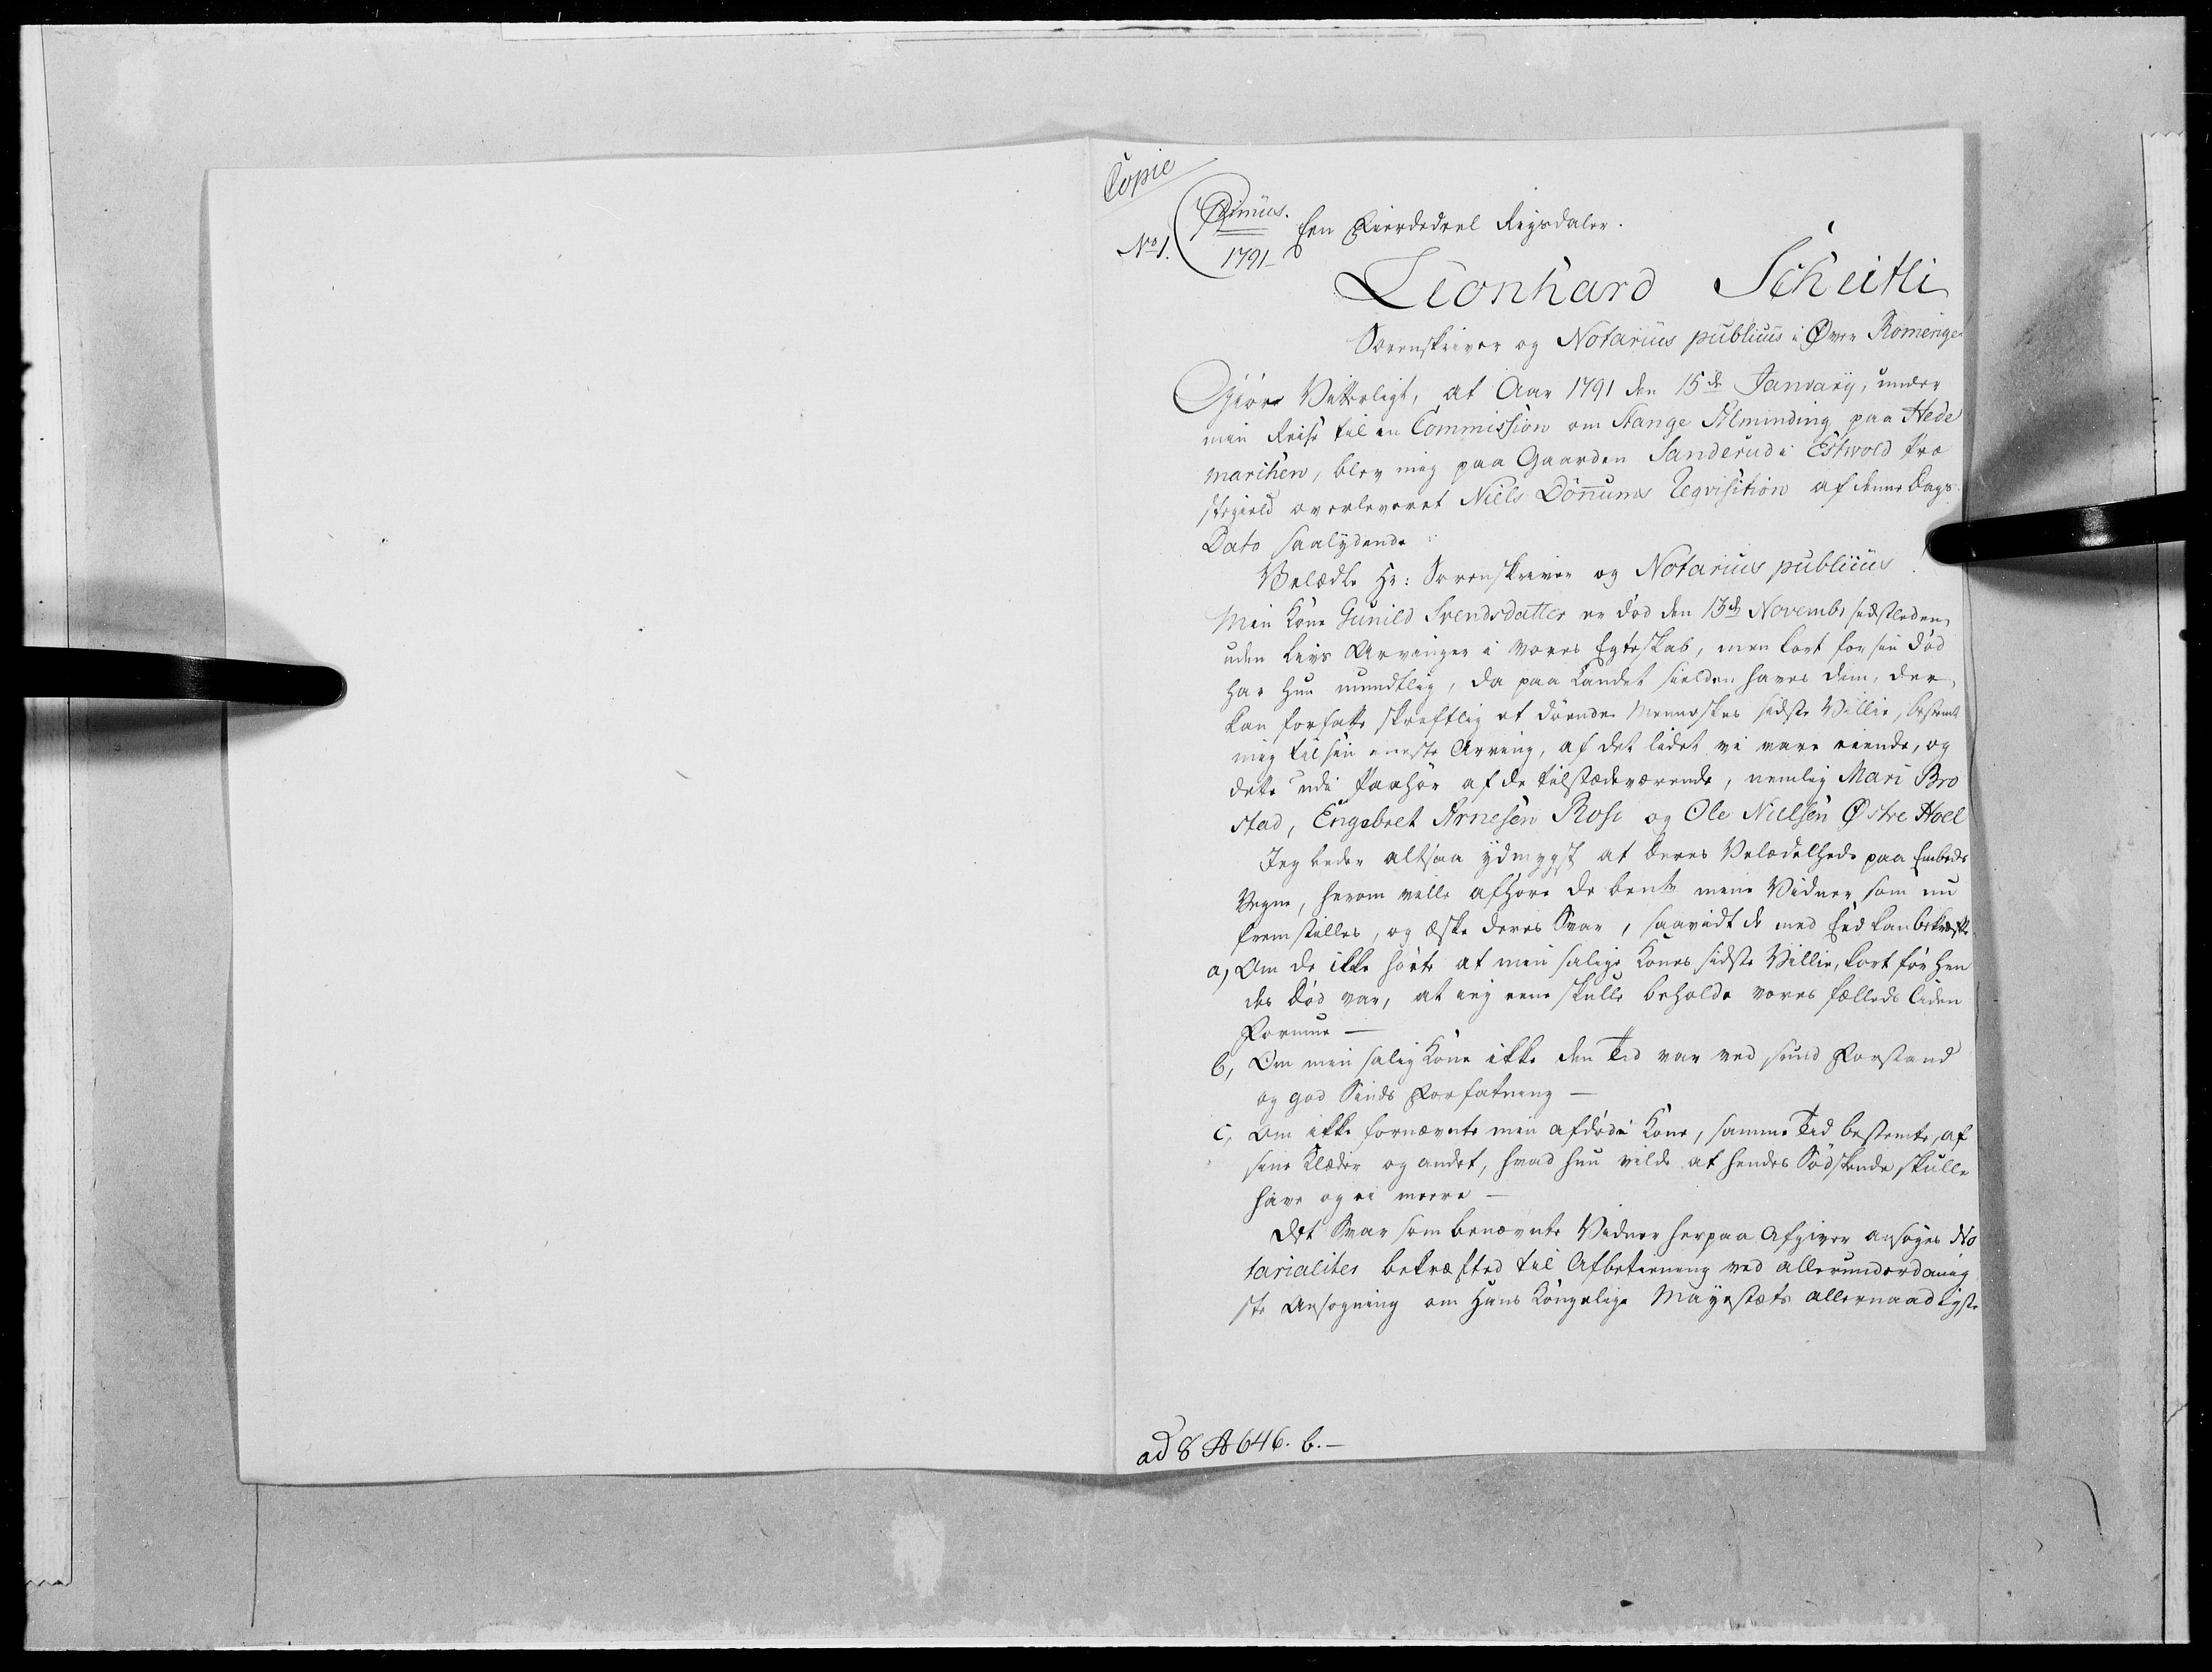 Copie
No 1.
Primus.
1791
Een Fierdedeel Rigsdaler.
Leonhard Scheitli
Sorenskriver og Notarius publicus i Øvre Romerige
Giøre Vitterligt, at Aar 1791 den 15de Januarij, under
min Reise til en Commission om Stange Alminding paa Hede
marchen, blev mig paa Gaarden Sanderud i Estwold Præ
stegield overleveret Niels Dønnums Reqvisition af denne Dags
Dato saalydende:
Velædle Hr: Sorenskriver og Notarius publicus
Min Kone Gunild Svendsdatter er død den 13de Novembr sidstleden,
uden Livs Arvinger i vores Egteskab, men kort for sin Død
har hun mundtlig, da paa Landet sielden haves dem, der,
kan forfatte skrivtlig et døende Menneskes sidste Villie, bestemt
mig til sin eneste Arving, af det lidet vi vare eiende, og
dette udi Paahør af de tilstædeværende, nemlig Mari Bro
stad, Engebret Arnesen Rose og Ole Nielsen Østre Hoel
Jeg beder altsaa ydmygst at Deres Velædelhed paa Embeds
Vegne, herom ville afhøre de bente mine Vidner som nu
fremstilles, og æske deres Svar, saavidt de med Eed kan bekræfte
a, Om de ikke hørte at min salige Kones sidste Villie, kort før hen
des Død var, at ieg ene skulle beholde vores fælleds liden
Formue —
b, Om min salig Kone ikke den Tid var ved sund Forstand
og god Sinds Forfatning —
c, Om ikke fornævnte min afdøde Kone, samme Tid bestemte, af
sine Klæder og andet, hvad hun vilde at hendes Sødskende skulle
have og ei meere —
Det Svar som benævnte Vidner herpaa Afgiver ansøges No
tarialiter bekræfted til Afbetiening ved allerunderdanig
ste Ansøgning om Hans Kongelige Mayestæts allernaadigste
ad 8 A 646. b. —